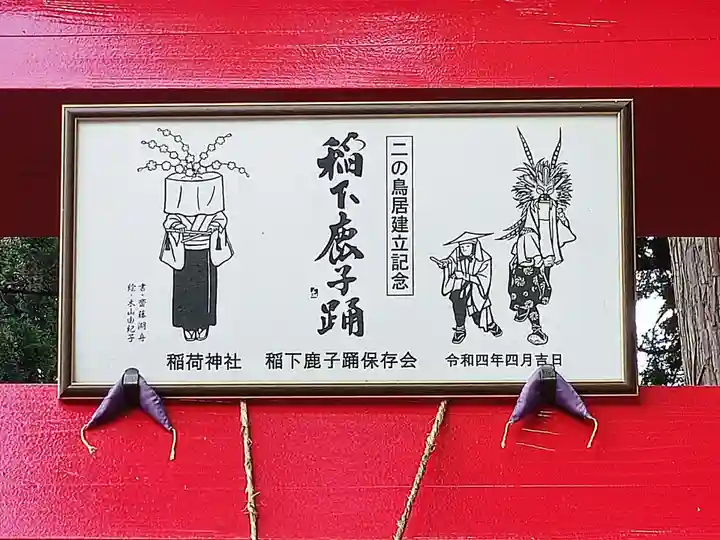 二の鳥居建立記念
稲下鹿子踊
書・齋藤湖舟
絵・木山由紀子
稲荷神社 稲下鹿子踊保存会 令和四年四月吉日